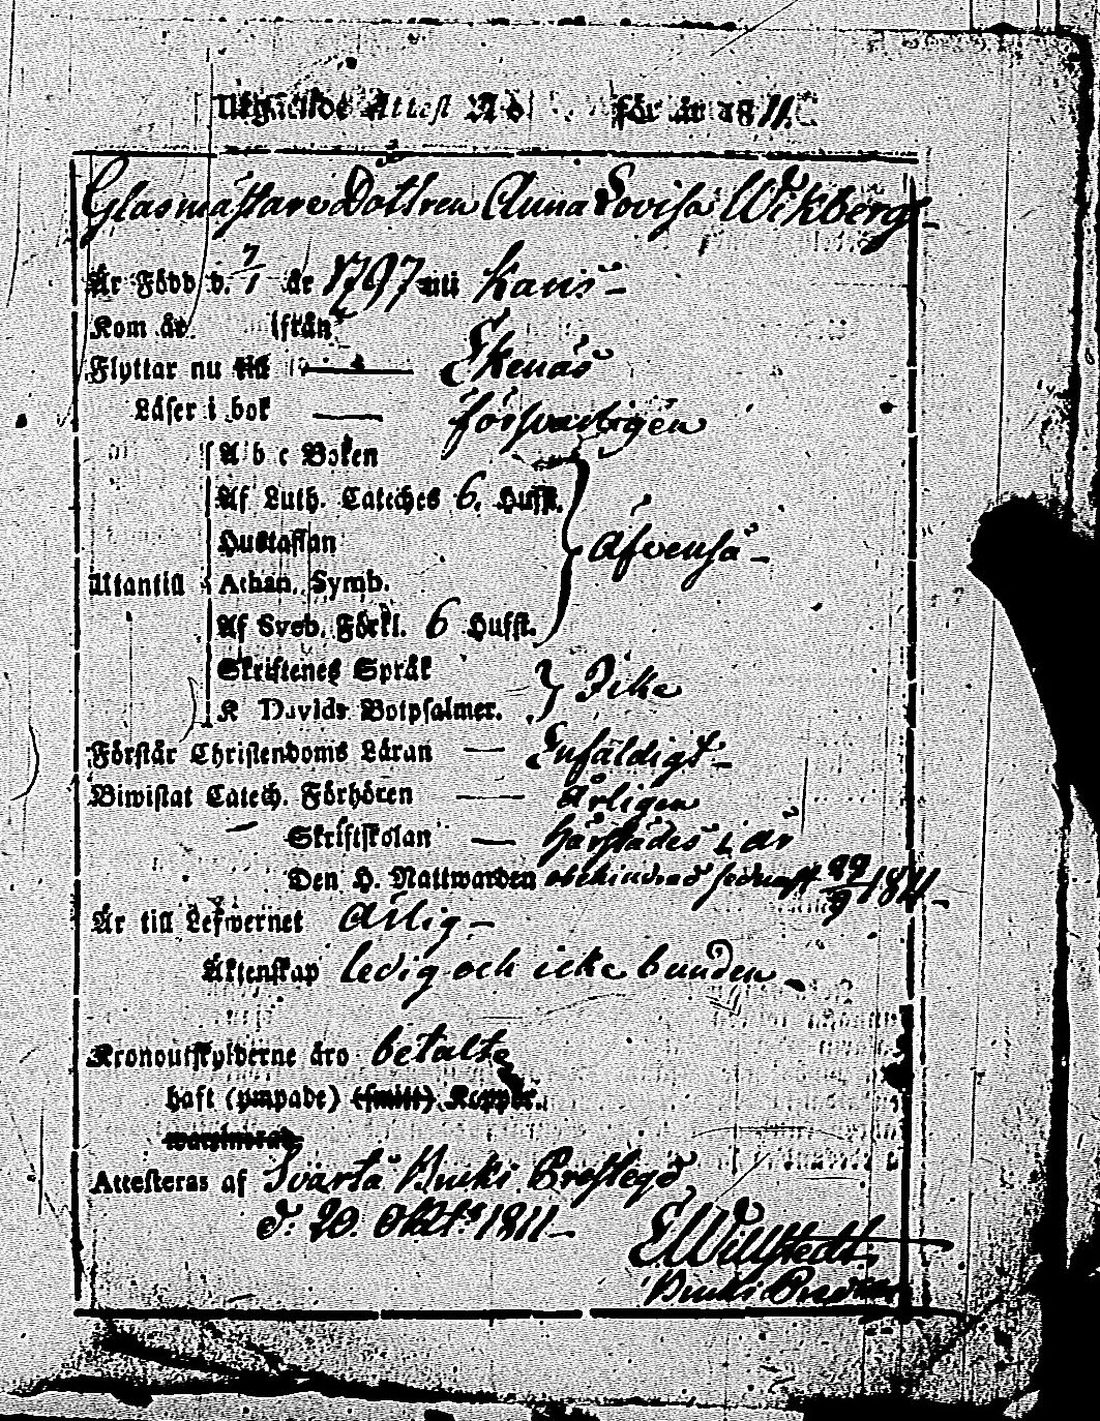 Utgående Attest No för år 1811.
Glasmästare Dottren Anna Lovisa Wikberg
Är Född d. 7/1 år 1797 uti Karis
Kom år ifrån
Flyttar nu till Ekenäs
Läser i bok försvarligen
A b c Boken
Af Luth. Cateches 6. Hufst.
Hustaflan
Utantill Athan. Symb. Äfvenså
Af Sveb. Förkl. 6 Hufst.
Skriftenes Språk
K Davids Botpsalmer. Icke
Förstår Christendoms Läran Enfäldigt
Biwistat Catech. Förhören Årligen
Skriftskolan härstädes i år
Den H. Nattwarden obehindrad sednast 29/9 1811
Är till Lefwernet Ärlig
Äktenskap ledig och icke bunden
Kronoutskylderne äro betalte
haft (ympade) (smitt) Koppor.
waccinerad.
Attesteras af Svartå Bruks Prestegd
d. 20. Okt. 1811
E Willstedt
Bruks Pred